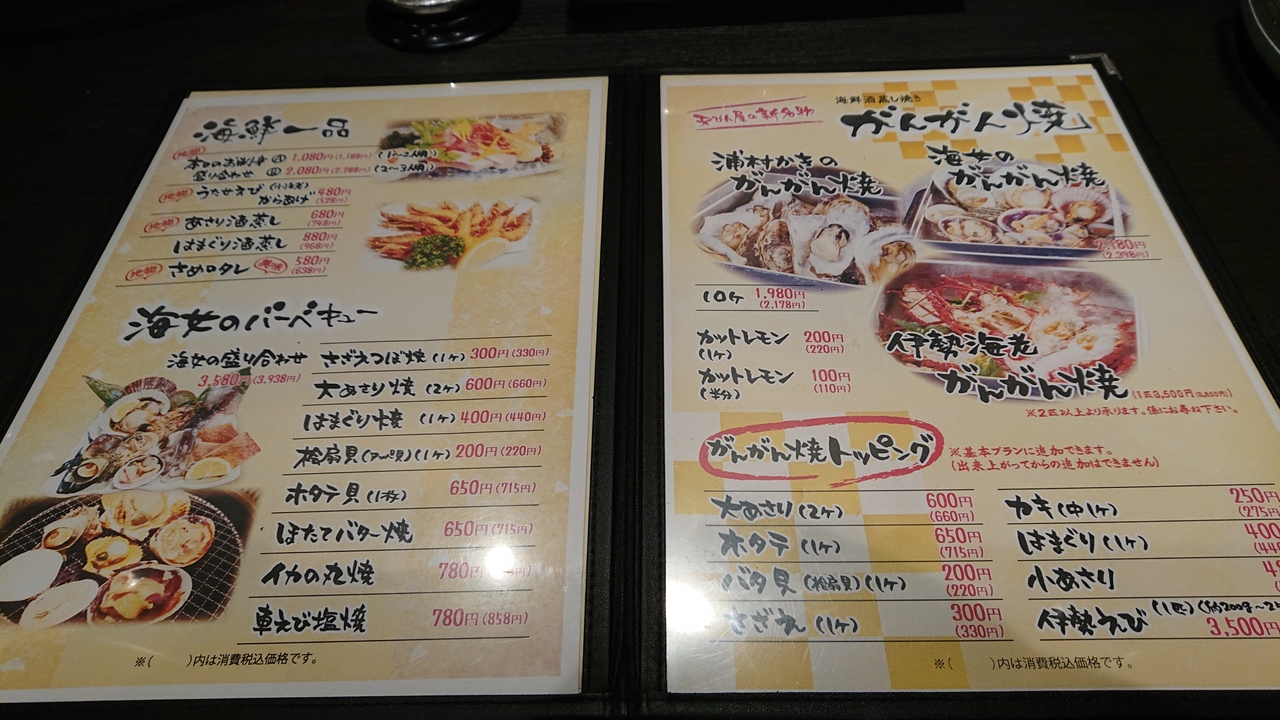 海鮮一品
地物 本日のお造り 小 1,080円(1,188円) (1〜2人前)
盛り合わせ 大 2,080円(2,288円) (2〜3人前)
地物 うたせえび からあげ 480円
(528円)
地物 あさり酒蒸し 680円
(748円)
はまぐり酒蒸し 880円
(968円)
地物 さめのタレ 珍味 580円
(638円)
海女のバーベキュー
海女の盛り合わせ
3,580円(3,938円)
さざえつぼ焼(1ヶ) 300円(330円)
大あさり焼(2ヶ) 600円(660円)
はまぐり焼(1ヶ) 400円(440円)
桧扇貝(アッパ貝)(1ヶ) 200円(220円)
ホタテ貝(1枚) 650円(715円)
ほたてバター焼 650円(715円)
イカの丸焼 780円
車えび塩焼 780円(858円)
※( )内は消費税込価格です。
屋の新名物
海鮮酒蒸し焼き
がんがん焼
浦村かきの
がんがん焼
海女の
がんがん焼
2,180円
(2,398円)
10ヶ 1,980円
(2,178円)
カットレモン 200円
(1ヶ) (220円)
カットレモン 100円
(半分) (110円)
伊勢海老
がんがん焼
(1匹3,500円(3,850円))
※2匹以上より承ります。係にお尋ね下さい。
がんがん焼トッピング
※基本プランに追加できます。
(出来上がってからの追加はできません)
大あさり(2ヶ) 600円
(660円)
ホタテ(1ヶ) 650円
(715円)
バタ貝(桧扇貝)(1ヶ) 200円
(220円)
さざえ(1ヶ) 300円
(330円)
カキ(中1ヶ) 250円
(275円
はまぐり(1ヶ) 400
(44
小あさり
伊勢えび(1匹)(約200g〜2
3,500円
※( )内は消費税込価格です。